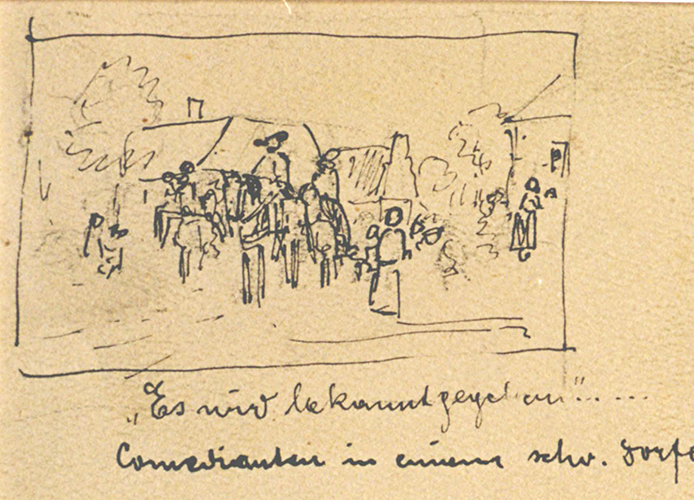 „Es wird bekanntgegeben".....
Comedianten in einem schw. Dorfe